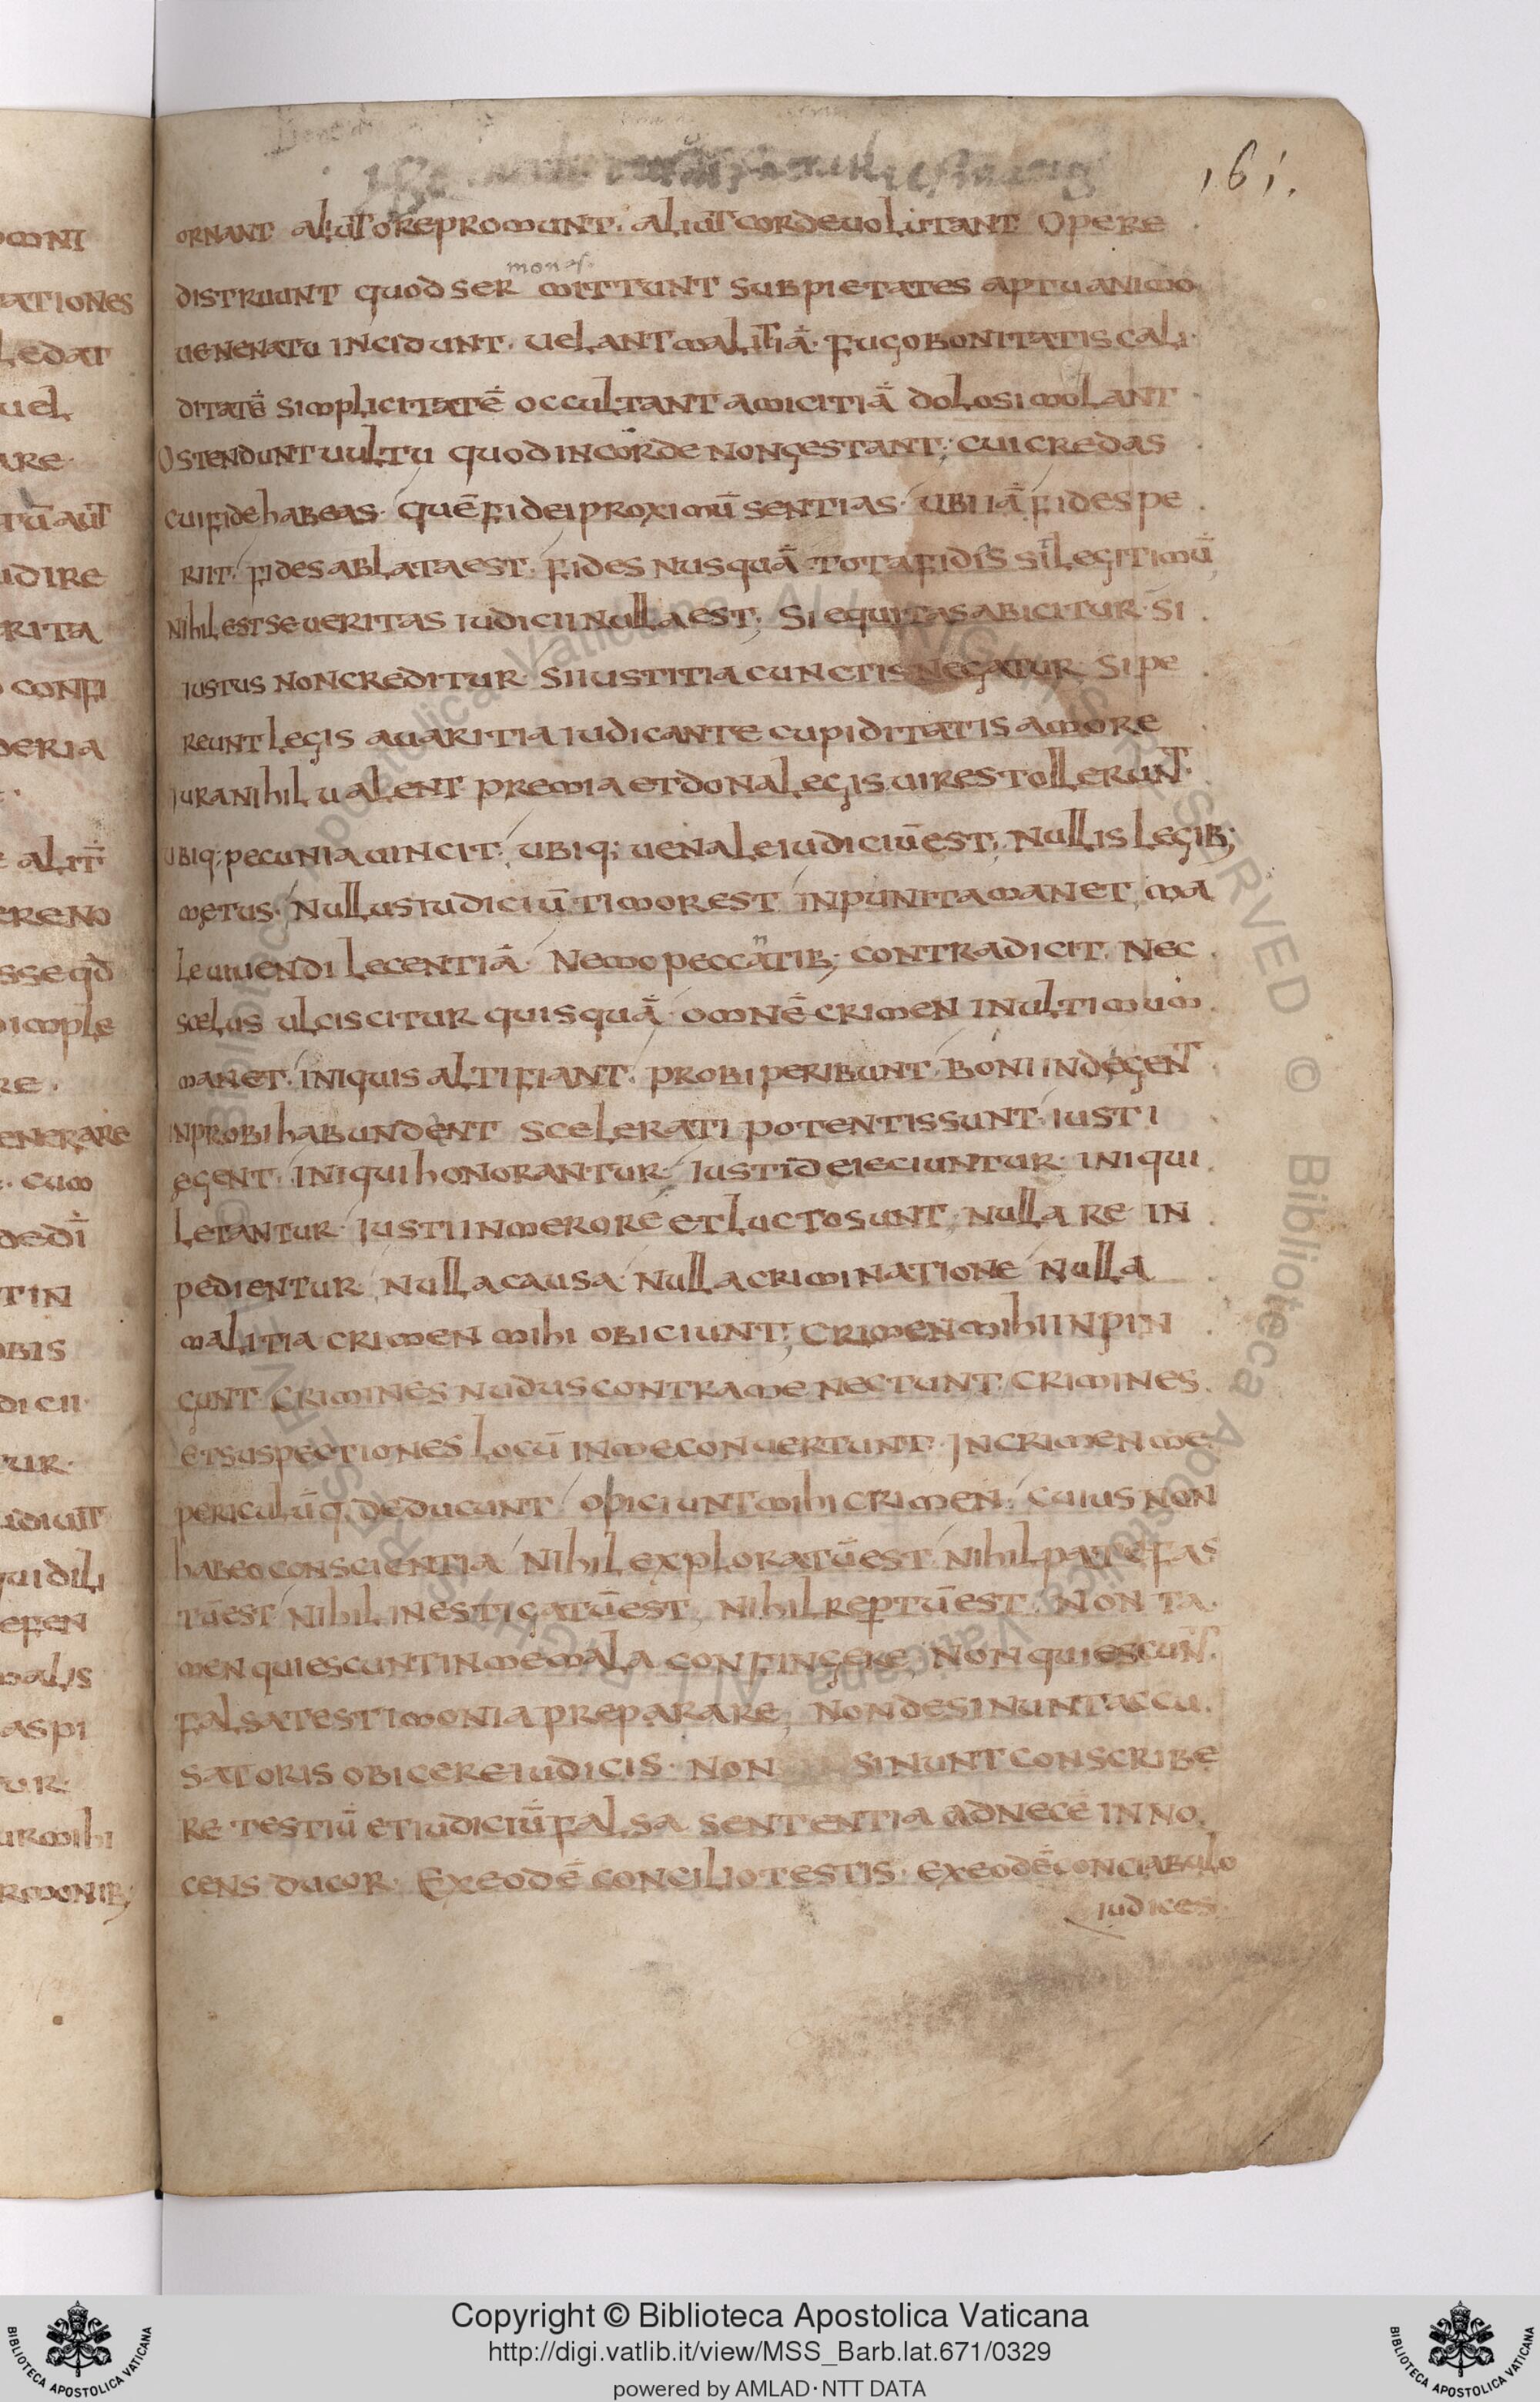 161.
ORNANT aliut̄ ORE PROMUNT · aliut̄ CORDE UOLUTANT OPERE
mones
DISTRUUNT quod SER MITTUNT SUB PIETATES APTU ANIMO
UENENATU INCIDUNT · UELANT MALITIĀ · FUGO BONITATIS CALI·
DITATĒ SIMPLICITATĒ OCCULTANT AMICITIĀ DOLO SIMOLANT
OSTENDUNT UULTU QUOD IN CORDE NON GESTANT; CUI CREDAS
CUI FIDE HABEAS · QUĒ FIDEI PROXIMŪ SENTIAS · UBI IĀ FIDES PE
RIIT · FIDES ABLATA EST · FIDES NUSQUĀ TOTA FIDIS SI LEGITIMŪ
NIHIL EST SE UERITAS IUDICII NULLA EST; SI EQUITAS ABICITUR · SI
IUSTUS NON CREDITUR · SI IUSTITIA CUNCTIS NEGATUR SI PE
REUNT LEGIS AUARITIA IUDICANTE CUPIDITATIS AMORE
IURA NIHIL UALENT PREMIA ET DONA LEGIS UIRES TOLLERUNT·
UBIQ; PECUNIA UINCIT; UBIQ; UENALE IUDICIŪ EST; NULLIS LEGIB;
METUS · NULLUS IUDICIŪ TIMOR EST INPUNITA MANET MA
LE UIUENDI LECENTIĀ · NEMO PECCANTIB; CONTRADICIT NEC
SCELUS ULCISCITUR QUISQUĀ OMNĒ CRIMEN INULTIMUM
MANET · INIQUIS ALTI FIANT · PROBI PERIBUNT BONI INDEGENT
INPROBI HABUNDENT SCELERATI POTENTISSUNT · IUSTI
EGENT · INIQUI HONORANTUR · IUSTI DEIECIUNTUR INIQUI
LETANTUR · IUSTI IN MERORE ET LUCTO SUNT; NULLA RE IN
PEDIENTUR NULLA CAUSA NULLA CRIMINATIONE NULLA
MALITIA CRIMEN MIHI OBICIUNT; CRIMEN MIHI INPIN
GUNT CRIMINES NUDUS CONTRA ME NECTUNT CRIMINES
ET SUSPECTIONES LOCŪ IN ME CONUERTUNT · IN CRIMEN ME
PERICULŪQ; DEDUCUNT OBICIUNT MIHI CRIMEN · CUIUS NON
HABEO CONSCIENTIA NIHIL EXPLORATŪ EST NIHIL PATEFAC
TŪ EST NIHIL INESTIGATŪ EST; NIHIL REPTŪ EST NON TA
MEN QUIESCUNT IN ME MALA CONFINGERE; NON QUIESCUNT
FALSA TESTIMONIA PREPARARE; NON DESINUNT ACCU
SATORIS OBICERE IUDICIS · NON SINUNT CONSCRIBE
RE TESTIŪ ET IUDICIŪ FALSA SENTENTIA AD NECĒ INNO
CENS DUCOR · EX EODĒ CONCILIO TESTIS · EX EODĒ CONCIABULO
IUDICES
Copyright © Biblioteca Apostolica Vaticana
http://digi.vatlib.it/view/MSS_Barb.lat.671/0329
powered by AMLAD·NTT DATA